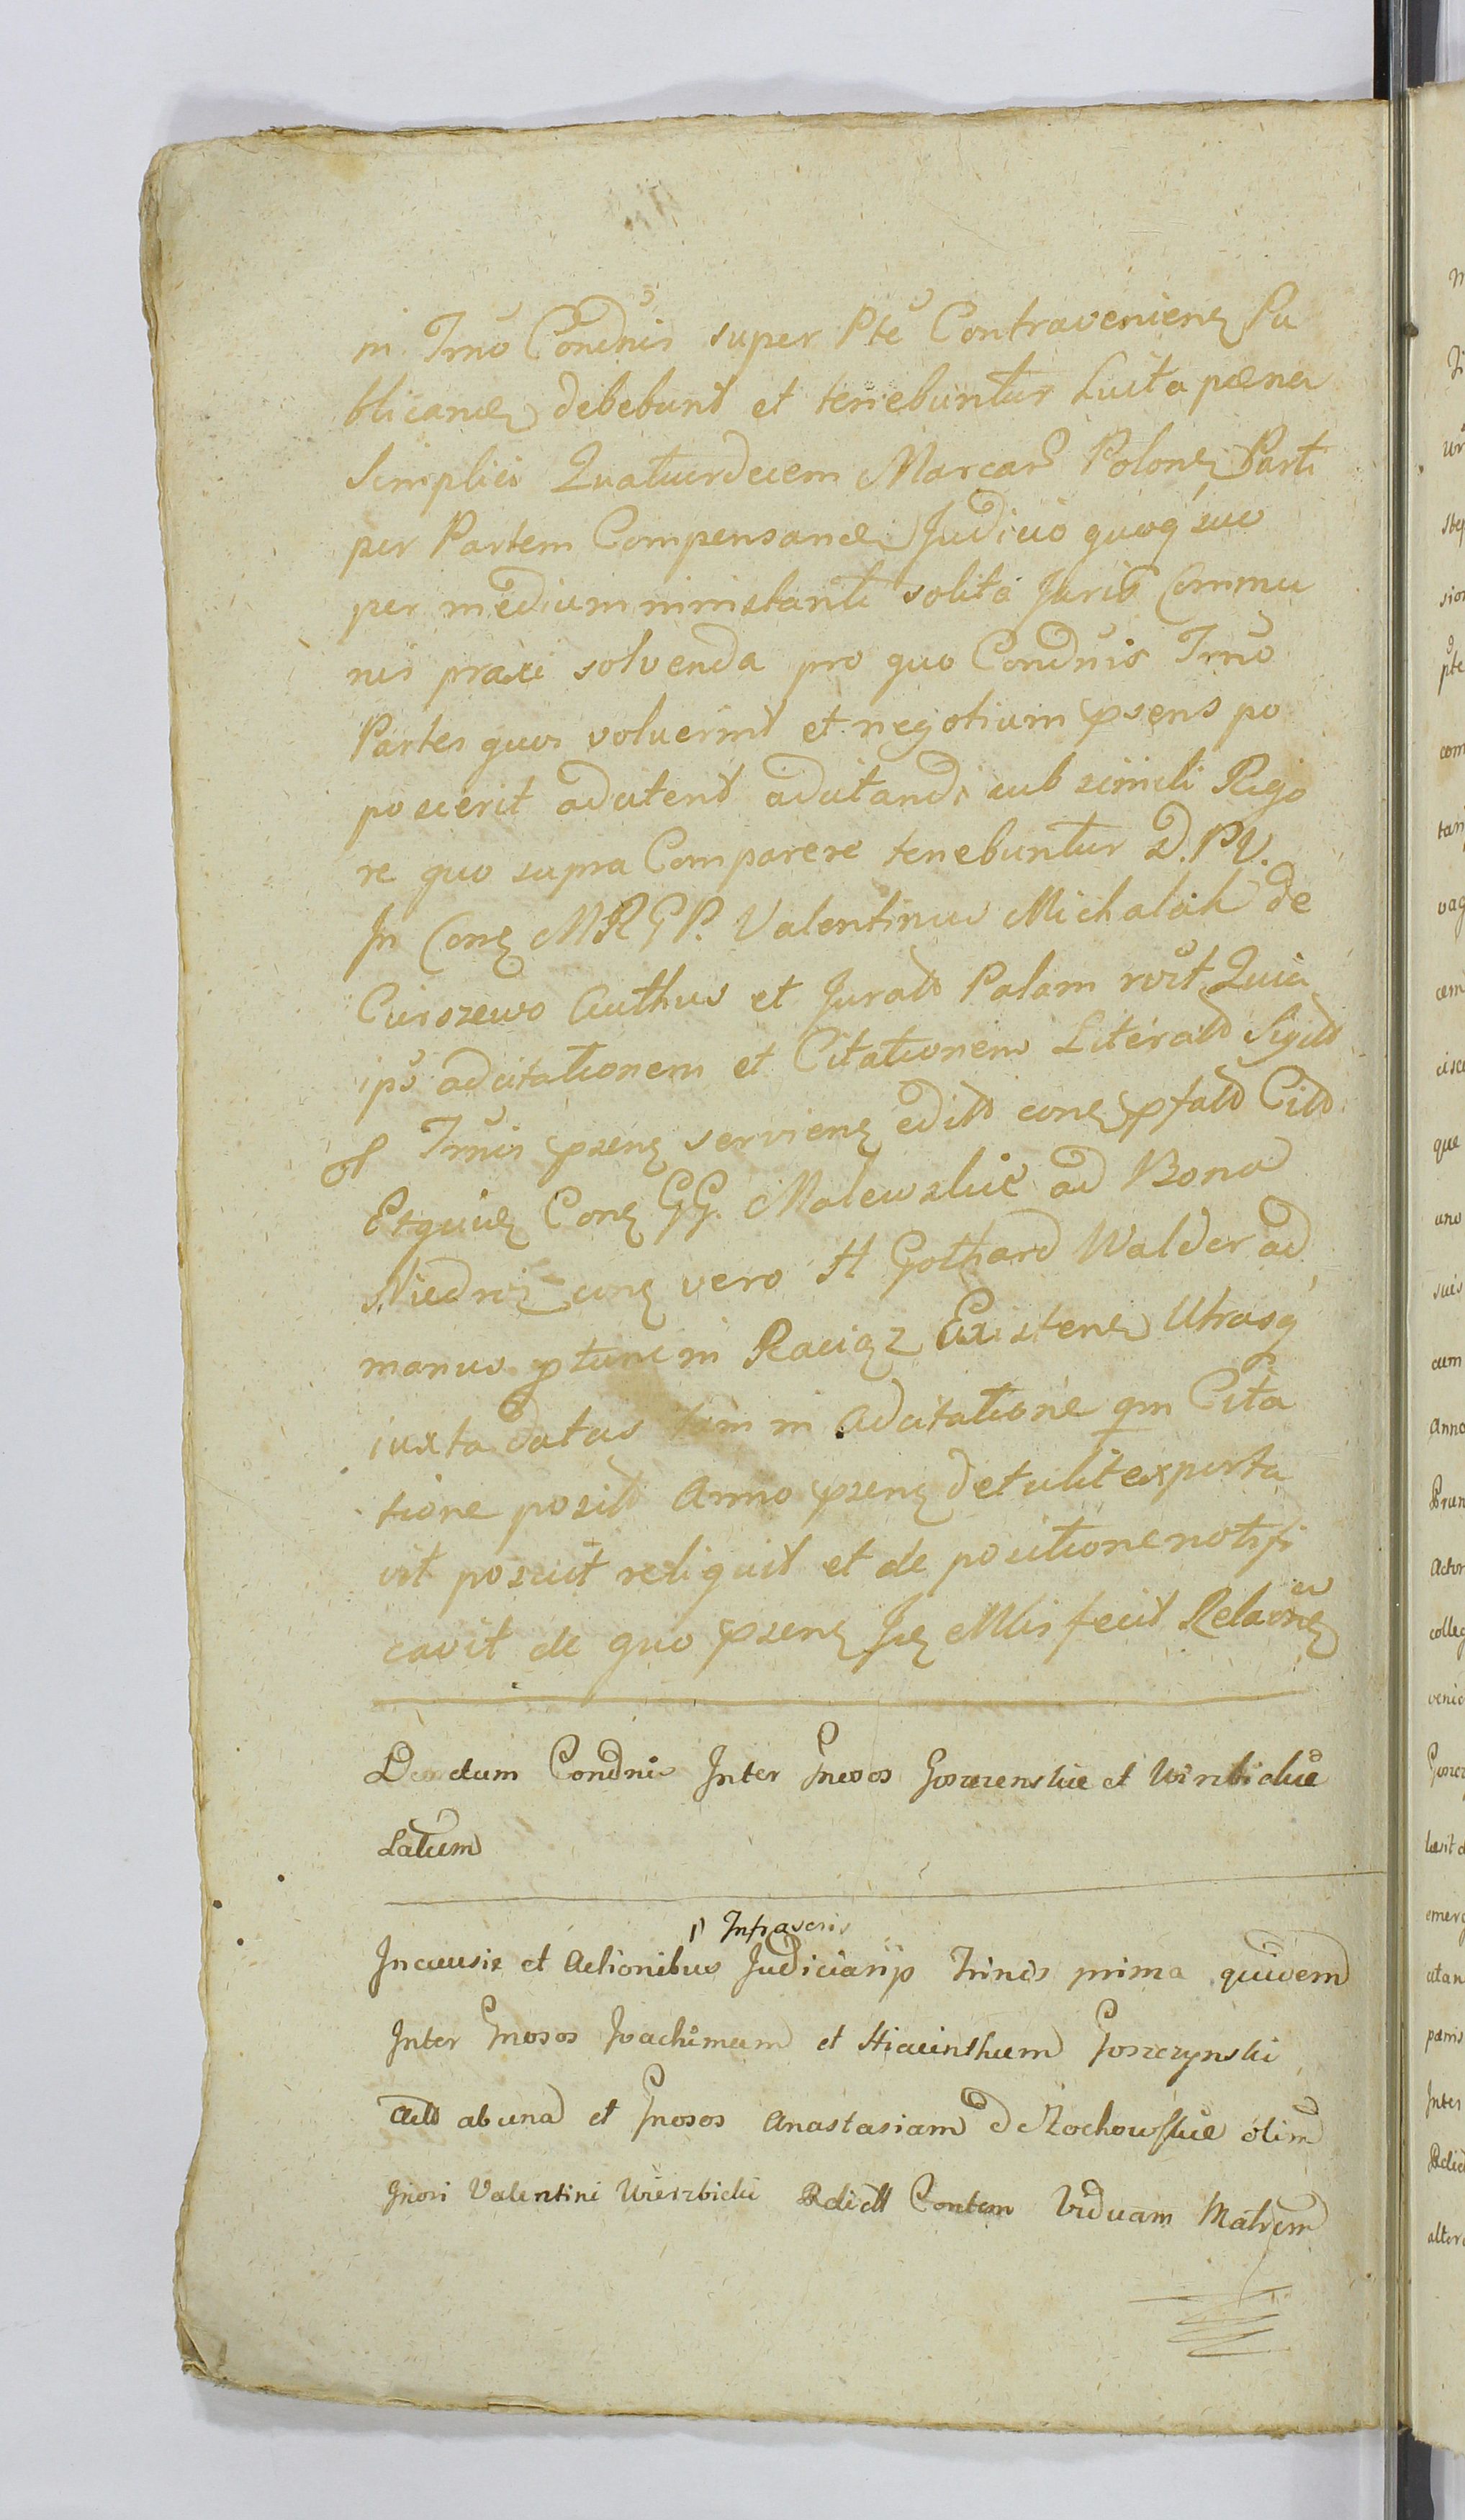 in Trno Condnis super Pte Contravenien Pu
blicanda debebunt et tenebuntur Luita pœna
simplici Quatuordecem Marcar Polon Parti
per Partem Compensanda Judicio quoq sue
per medium ministanti solita Juris Commu
nis praxi solvenda pro quo Condnis Trno
Partes quos voluerint et negotium psens po
poscerit adcitent adcitandi sub simili Rigo
re quo supra Comparere tenebuntur D. P. V.
In Con MRGP. Valentinus Michalak de
Ciuszewo Authus et Jurats Palam rvit Quia
ips adcitationem et Citationem Literats Sigits
of Trnis psen servien edits con pfats Cits
Exquiv Con GG. Malewskie ad Bona
Niedroz con vero H Gothard Walder ad
manus ptunc in Raciąz Existen Utrasq
iuxta datas tam in adcitatione qm Cita
tione posits Anno psen detulit exporta
vit posuit reliquit et de positione notifi
cavit de quo psen Je Mlis fecit Relaone
Decretum Condnis Inter Gnesos Goszczenskie et Wirzbickie
Latum
Infrascris
In causis et Actionibus Judiciariis Trinis prima quidem
Inter Gnosos Joachimum et Hiacinthum Goszczynski
Acts ab una et Gnosos Anastasiam d Rochowskie olim
Gnosi Valentini Wierzbicki Relictt Contem Viduam Matrem
m
ste
sion
pte
com
tan
vag
cem
que
uno
suis
cum
Anno
Actor
colleg
venie
emerg
Inter
alter